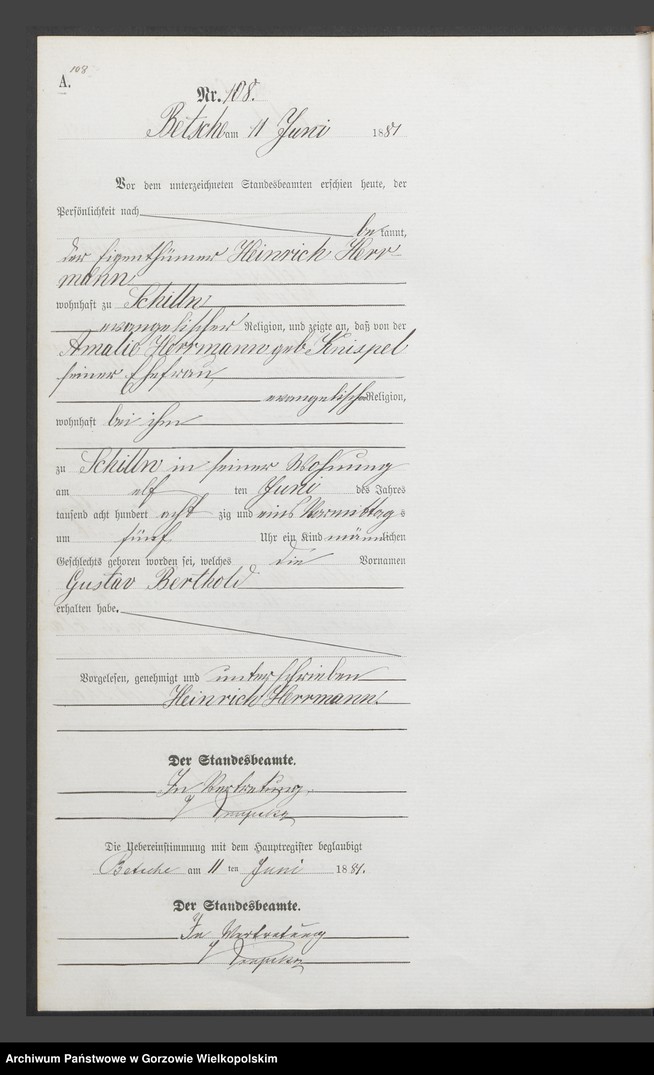 108
A.
Nr. 108.
Betsche am 11 Juni 1881
Vor dem unterzeichneten Standesbeamten erschien heute, der
Persönlichkeit nach
be kannt,
der Eigenthümer Heinrich Herr
mann
wohnhaft zu Schilln
evangelischer Religion, und zeigte an, daß von der
Amalie Herrmann geb. Knispel
seiner Ehefrau
evangelischer Religion,
wohnhaft bei ihm
zu Schilln in seiner Wohnung
am elf ten Juni des Jahres
tausend acht hundert acht zig und eins Vormittags
um fünf Uhr ein Kind männlichen
Geschlechts geboren worden sei, welches die Vornamen
Gustav Berthold
erhalten habe.
Vorgelesen, genehmigt und unterschrieben
Heinrich Herrmann.
Der Standesbeamte.
In Vertretung.
Die Uebereinstimmung mit dem Hauptregister beglaubigt
Betsche am 11 ten Juni 1881.
Der Standesbeamte.
In Vertretung
Archiwum Państwowe w Gorzowie Wielkopolskim